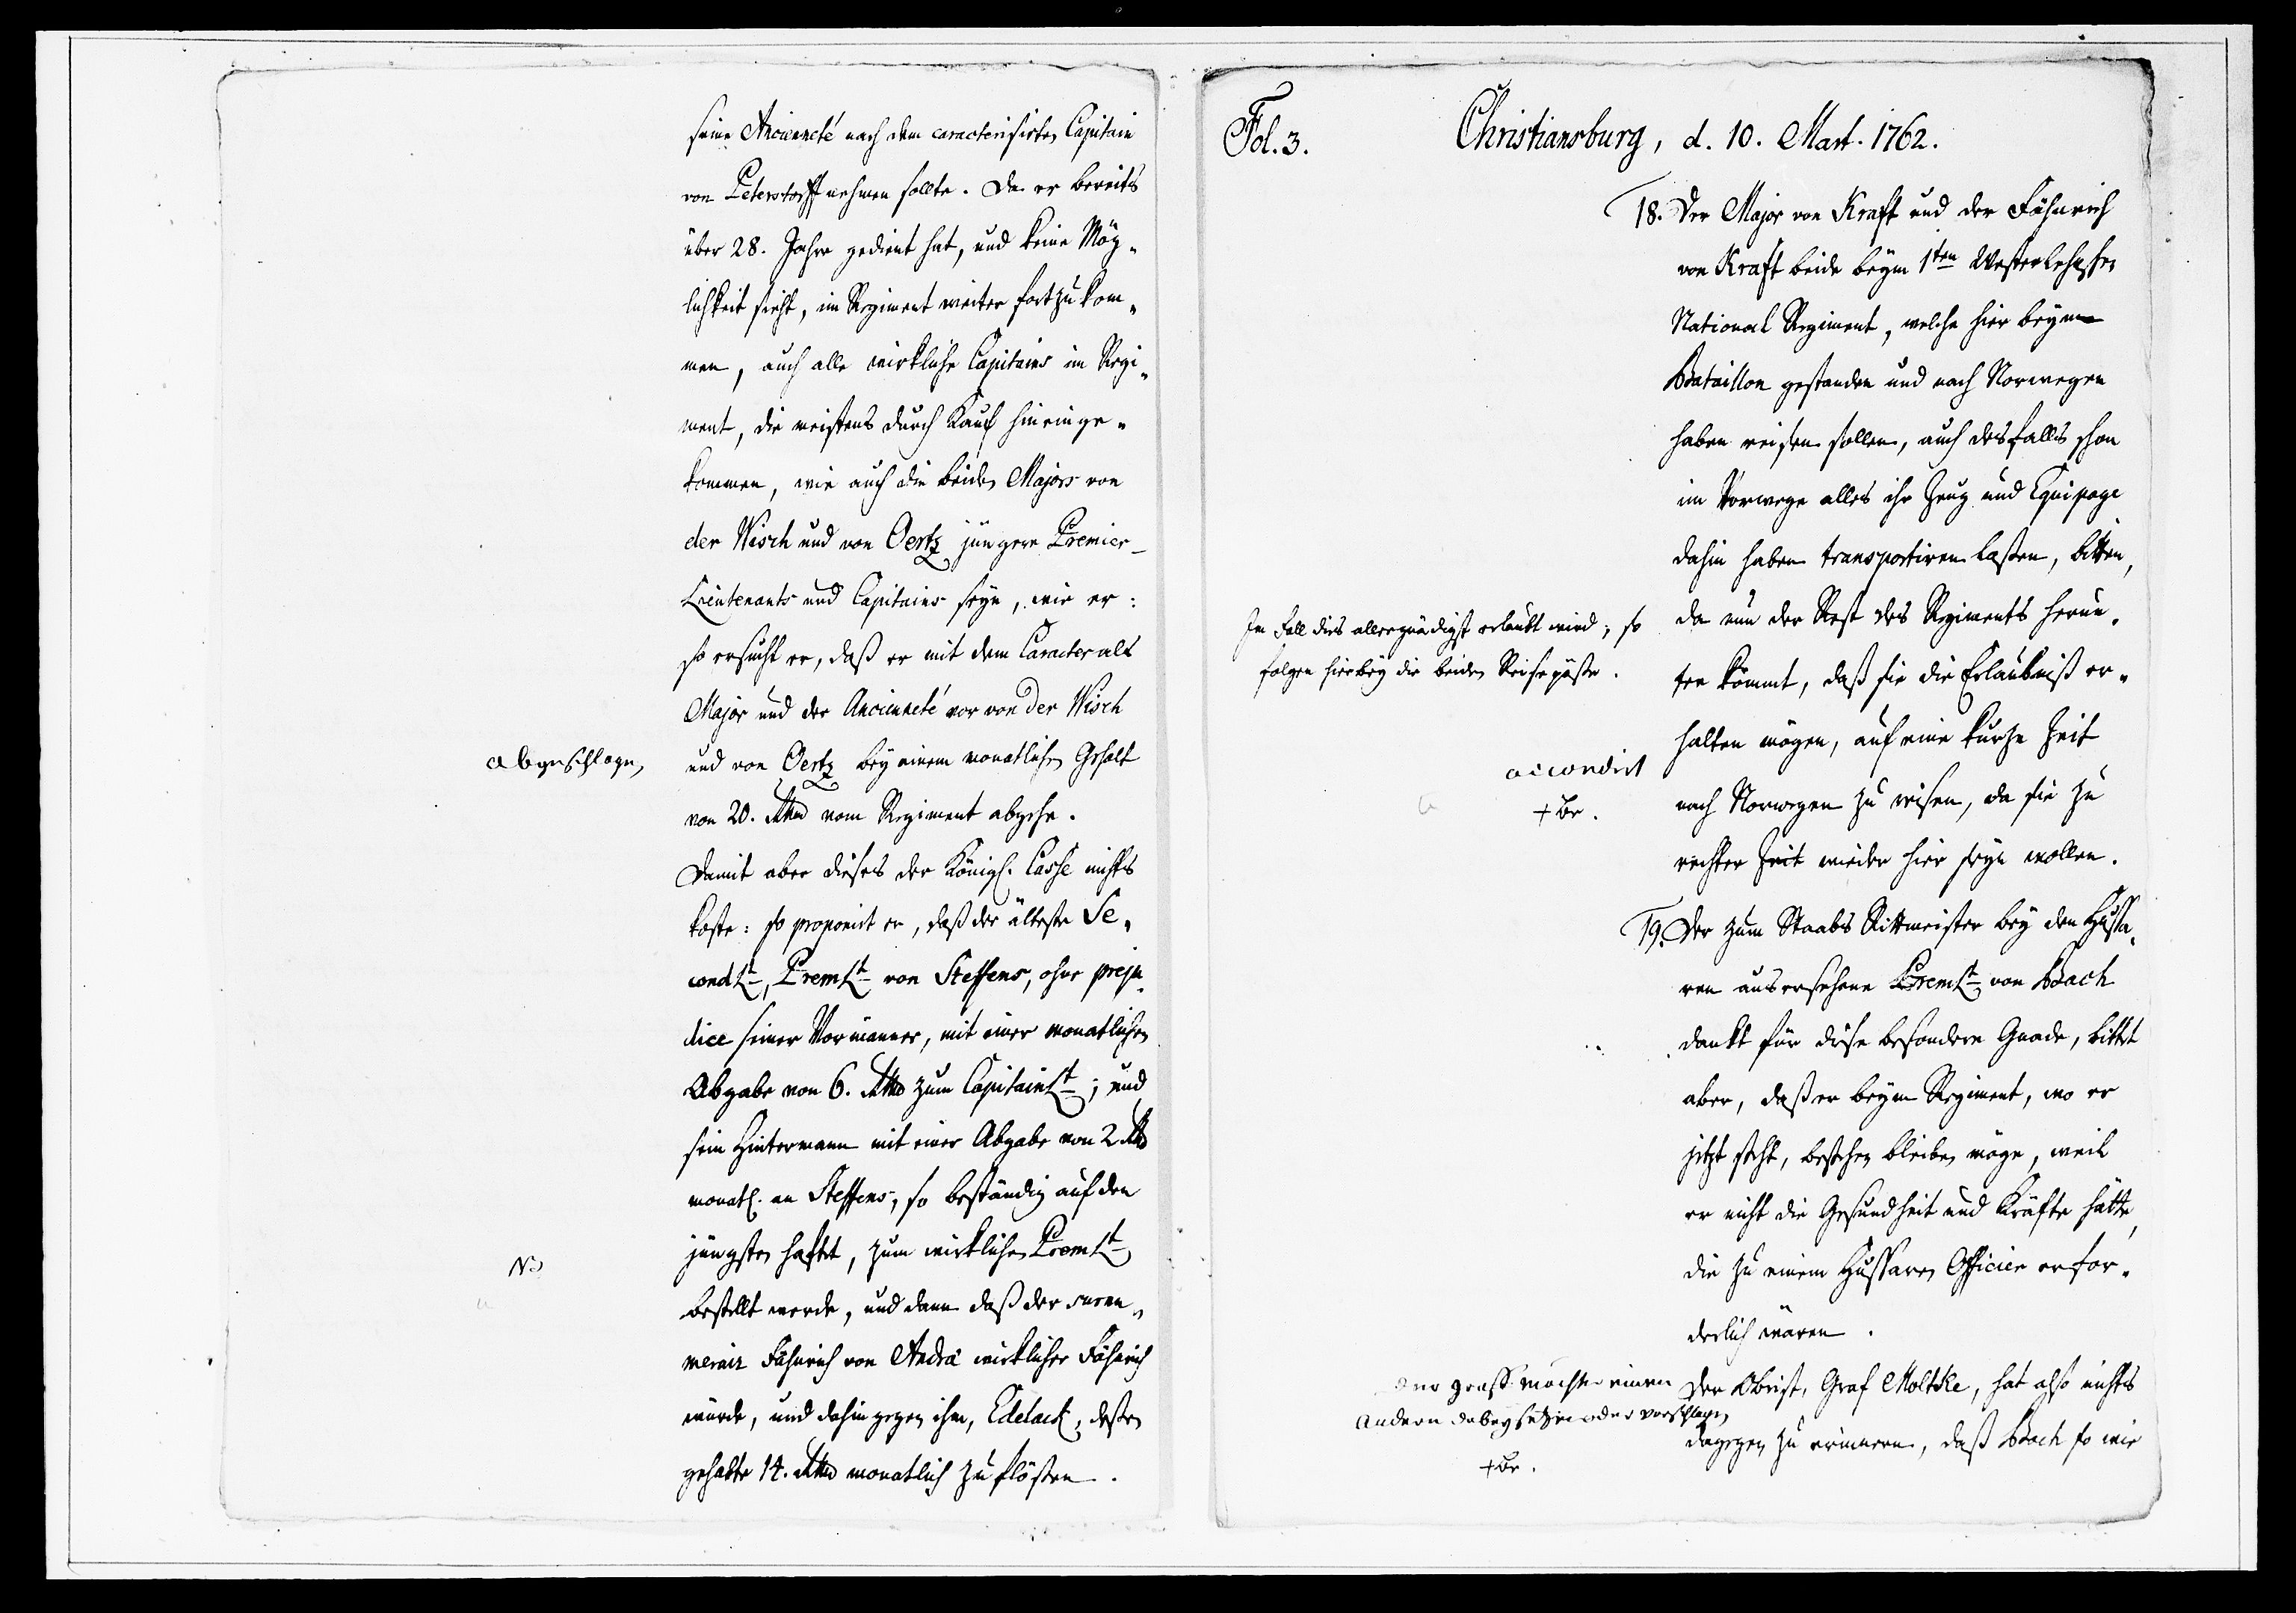 seine Ancienneté nach dem caracterisirten Capitain
von Peterstorff nehmen sollte. Da er bereits
über 28. Jahre gedient hat, und keine Mög„
lichkeit sieht, im Regiment weiter fortzukom„
men, auch alle wirkliche Capitains im Regi„
ment, die meistens durch Kauf hineinge„
kommen, wie auch die beiden Majors von
der Wisch und von Oertz jüngere Premier-
Lieutenants und Capitains seyn, wie er:
so ersucht er, daß er mit dem Caracter als
Major und der Ancienneté vor von der Wisch
abgeschlagen,
und von Oertz bey einem monatlichen Gehalt
von 20. Rthlr vom Regiment abgehe.
Damit aber dieses der Königl. Casse nichts
koste: so proponirt er, daß der älteste Se„
cond Lt, Prem Lt von Steffens, ohne preju„
dice seiner Vormänner, mit einer monatlichen
Abgabe von 6. Rthlr zum Capitain Lt; und
sein Hintermann mit einer Abgabe von 2 Rthlr
monatl. an Steffens, so beständig auf den
jüngsten haftet, zum wirklichen Prem Lt
NB
bestellt werde, und dann daß der surnu„
merair Fähnrich von Andra wirklicher Fähnrich
würde, und dahingegen ihm, Edelack, deßen
gehabte 14. Rthlr monatlich zuflößen.
Fol. 3.
Christiansburg, d. 10. Mart. 1762.
18. Der Major von Kraft und der Fähnrich
von Kraft beide beym 1ten Westerlehnschen
National Regiment, welche hier beym
Bataillon gestanden und nach Norwegen
haben reisen sollen, auch desfalls schon
im Vorwege alles ihr Zeug und Equipage
dahin haben transportiren laßen, bitten,
da nun der Rest des Regiments herun„
ter kömmt, daß sie die Erlaubniß er„
halten mögen, auf eine kurze Zeit
nach Norwegen zu reisen, da sie zu
rechter Zeit wieder hier seyn wollen.
Im Fall dies allergnädigst erlaubt wird; so
folgen hierbey die beiden Reisepäße.
accordirt
19. Der zum Staabs Rittmeister bey den Hussa„
ren ausersehene Prem Lt von Bach
dankt für diese besondere Gnade, bittet
aber, daß er beym Regiment, wo er
jetzt steht, bestehen bleiben möge, weil
er nicht die Gesundheit und Kräfte hätte,
die zu einem Hussaren Officier erfor„
derlich wären.
Der Obrist, Graf Moltke, hat also nichts
dagegen zu erinnern, daß Bach so wie
der graff möchte einen
andern dabey setzen oder vorschlagen,